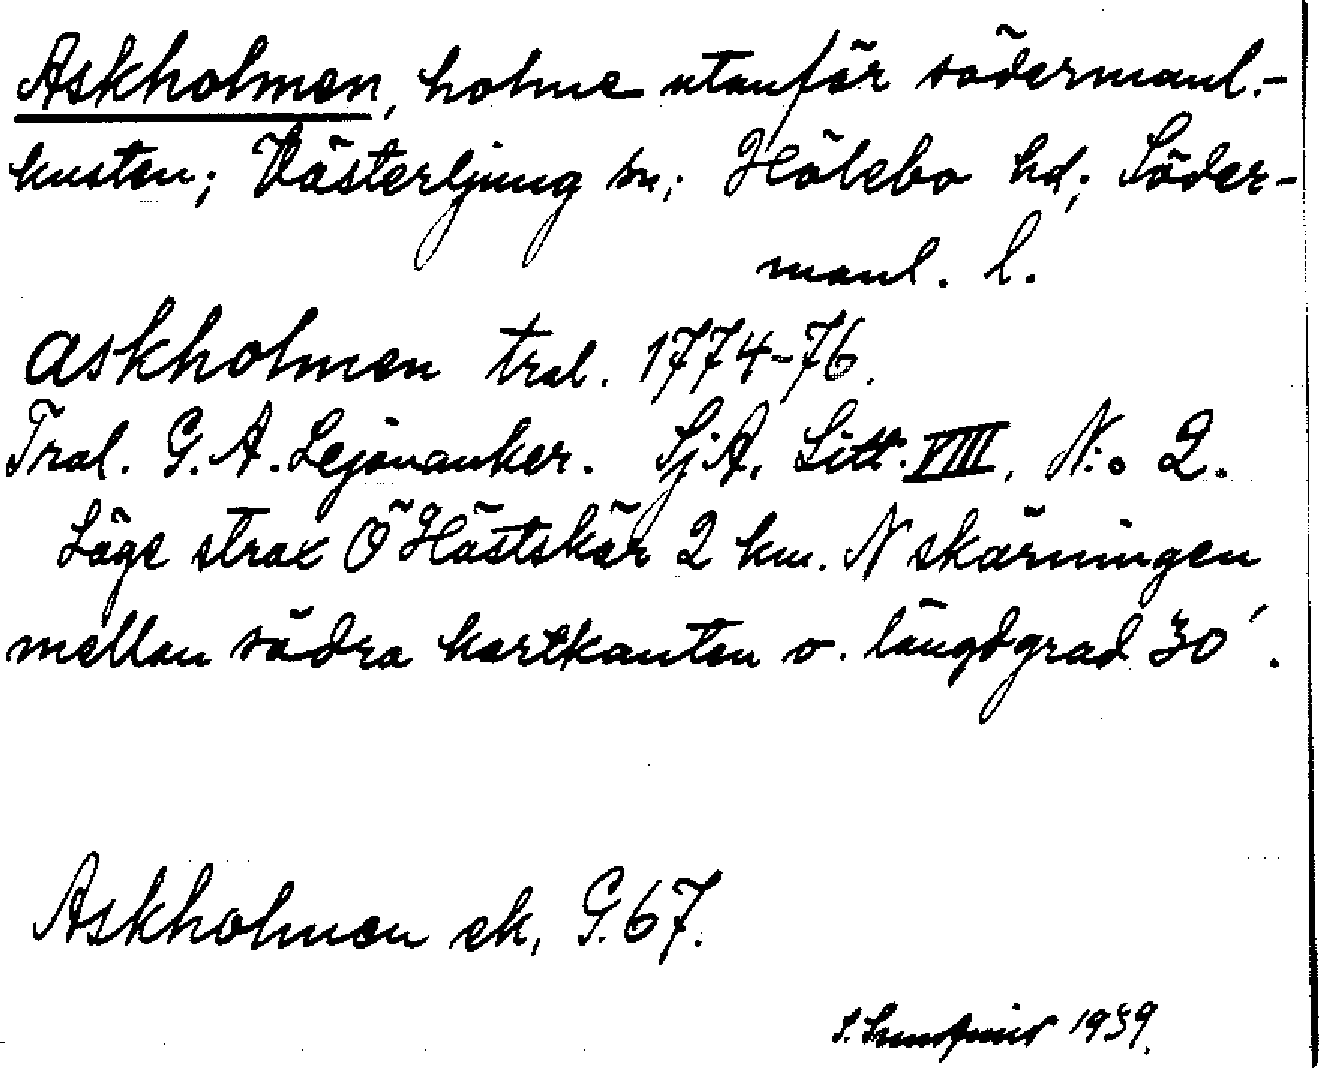 Askholmen, holme utanför södermanl.-
kusten; Västerljung sn; Hölebo hd; Söder-
manl. l.
askholmen tral. 1774-76.
Tral. G. A. Lejonanker. SjA. Litt. VIII. N:o 2.
Läge strax Ö Hästskär 2 km. N skärningen
mellan södra kartkanten o. längdgrad 30´.
Askholmen ek, G. 67.
1939.